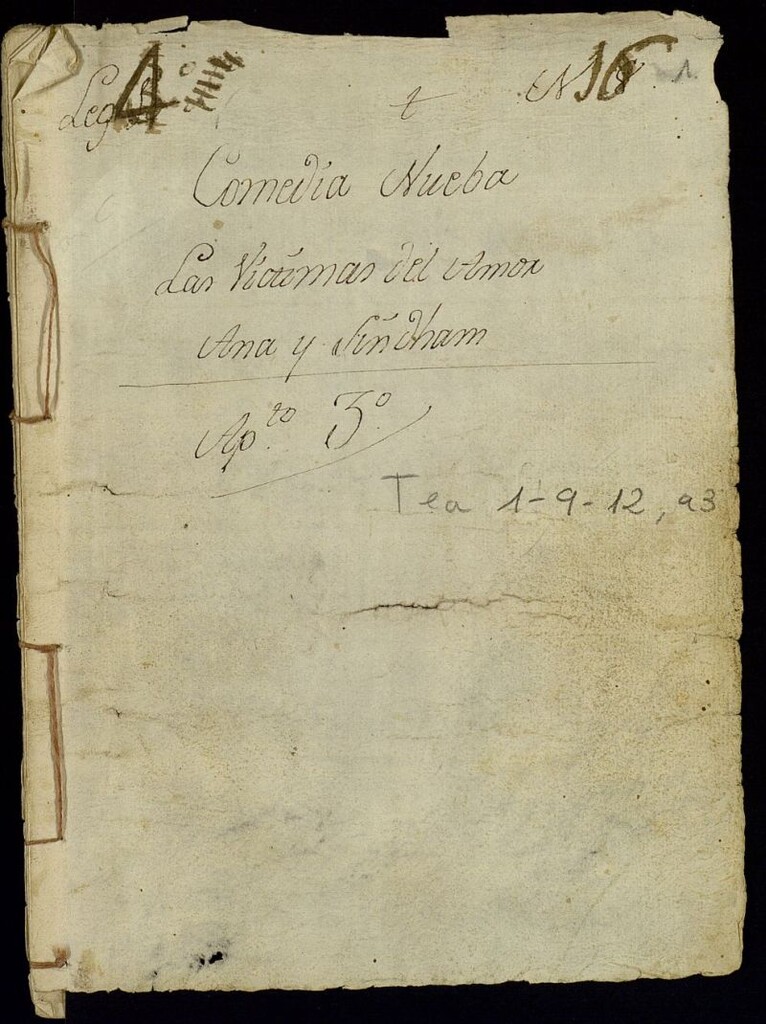 Leg 4º
t
N 16
1.
Comedia Nueba
Las Victimas del Amor
Ana y Sindham
Ap.to 3º
Tea 1-9-12, a3